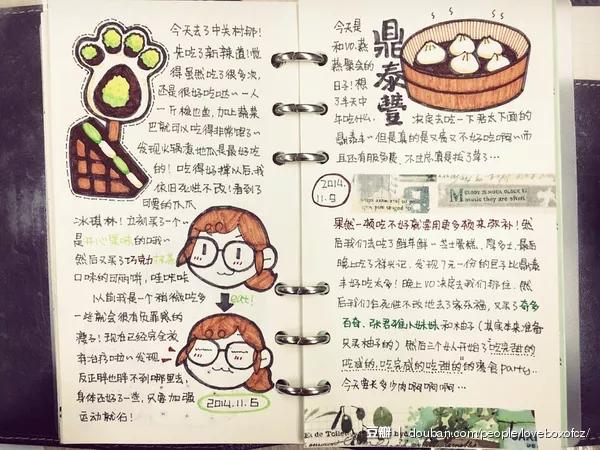 今天去了中关村耶!
先吃了新辣道!觉
得虽然吃了很多次,
还是很好吃哒~一人
一斤梭边鱼,加上蔬菜
巴就可以吃得非常饱了~
发现火锅煮地瓜是最好吃
的!吃得好撑以后,我
依旧死性不改!看到了
可爱的爪爪
冰琪林!立刻买了一个~
是开心果味的哦~
然后又买了巧克力抹茶
口味的可丽饼,哇咔咔
以前我是一个稍微吃多
一些就会很有负罪感的
孩子!现在已经完全放
弃治疗啦~发现
反正胖也胖不到哪里去,
身体还好了一些,只要加强
运动就行!
eat!
2014.11.5
今天是
和VO.燕
燕聚会的
日子!想
了半天中
午吃什么,
鼎泰豐
决定去吃一下君太下面的
鼎泰丰~但是真的是又贵又不好吃啊~而
且还有服务费,不过总算是拔了草了…
2014.
11.9
MELODY IS MUCH OLDER T
music they are often
果然一顿吃不好就需用更多顿来弥补!然
后我们去吃了鲜芋鲜~芝士蛋糕,周黑
晚上吃了祥兴记,发现7元一份的包子比鼎泰
丰好吃太多!晚上VO决定去我们那住,然
后我们死性不改地去了家乐福,又买了奇多
百奇、张君雅小妹妹和木由子(其实本来准备
只买柚子的)然后三个人开始了吃完甜的
吃咸的,吃完咸的吃甜的的宿舍party..
今天要长多少肉啊啊啊啊…
Es de Tolle
豆瓣 douban.com/people/loveboxofcz/